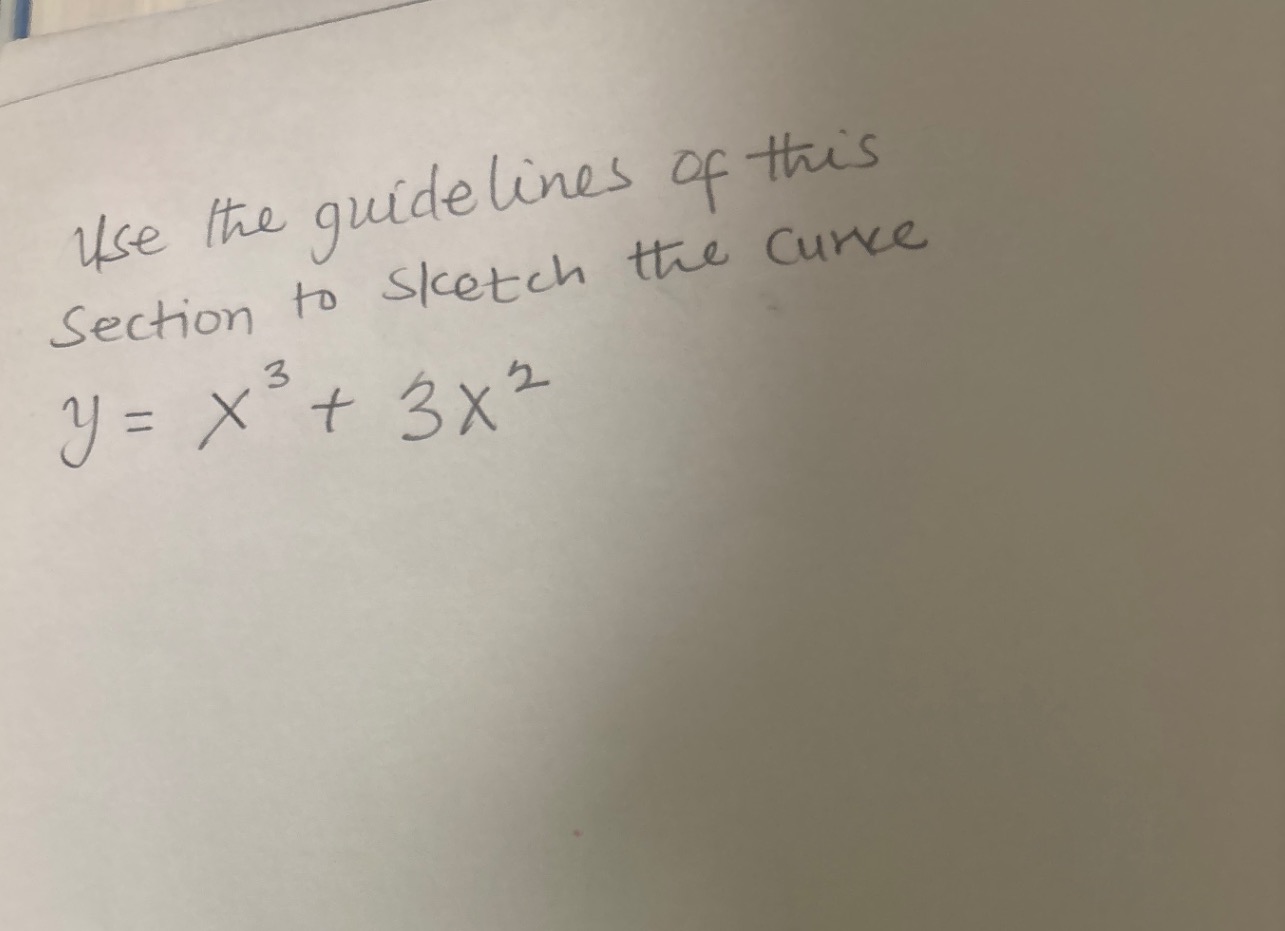 Use the guidelines of this
Section to sketch the curve
y = x³ + 3x²